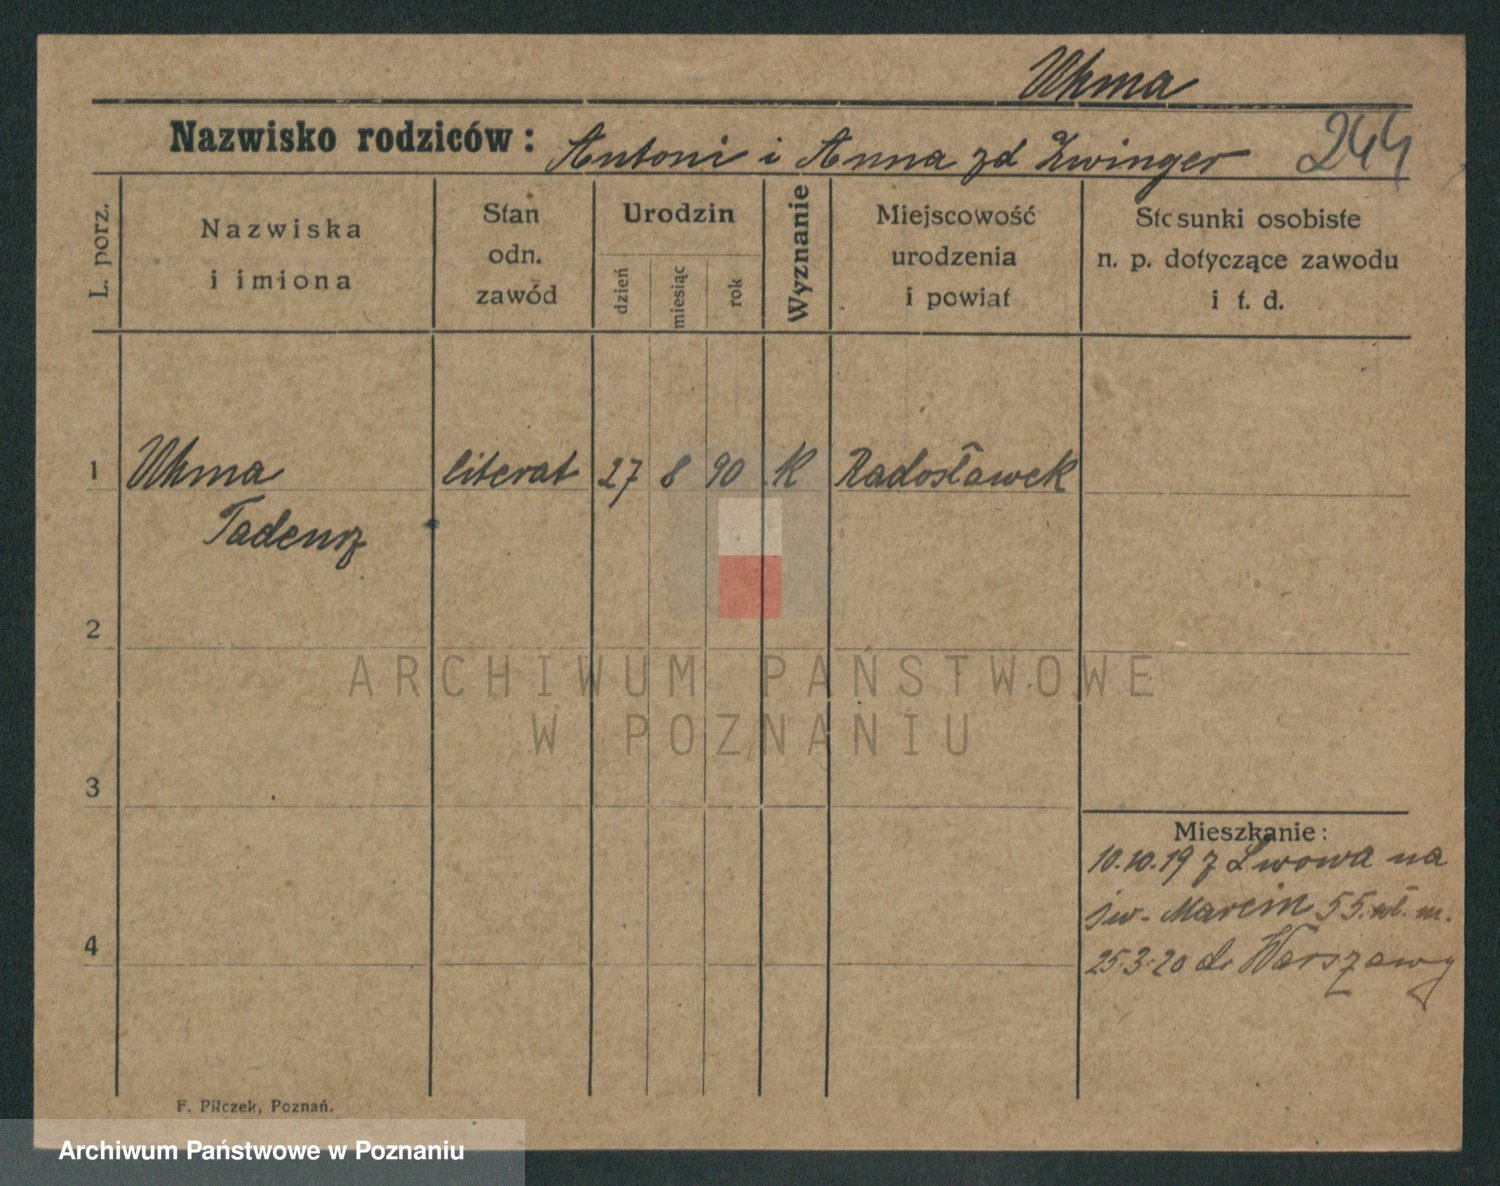 Uhma
Nazwisko rodziców: Antoni i Anna zd Zwinger 244
L. porz.
Nazwiska
i imiona
Stan
odn.
zawód
Urodzin
dzień
miesiąc
rok
Wyznanie
Miejscowość
urodzenia
i powiat
Stosunki osobiste
n. p. dotyczące zawodu
i t. d.
1 Uhma literat 27 8 90 K Radosławek
Tadeusz
2
ARCHIWUM PAŃSTWOWE
W POZNANIU
3
Mieszkanie:
10.10.19 z Lwowa na
św. Marcin 55. m.
4
25.3.20 do Warszawy
F. Pilczek, Poznań.
Archiwum Państwowe w Poznaniu